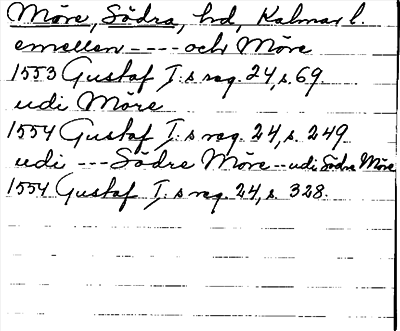 Möre, Södra, hd, Kalmar l.
emellen ---- och Möre
1553 Gustaf I:s reg. 24, s. 69.
udi Möre
1554 Gustaf I:s reg. 24, s. 249.
udi --- Södre Möre -- udi Södra Möre
1554 Gustaf I:s reg. 24, s. 328.